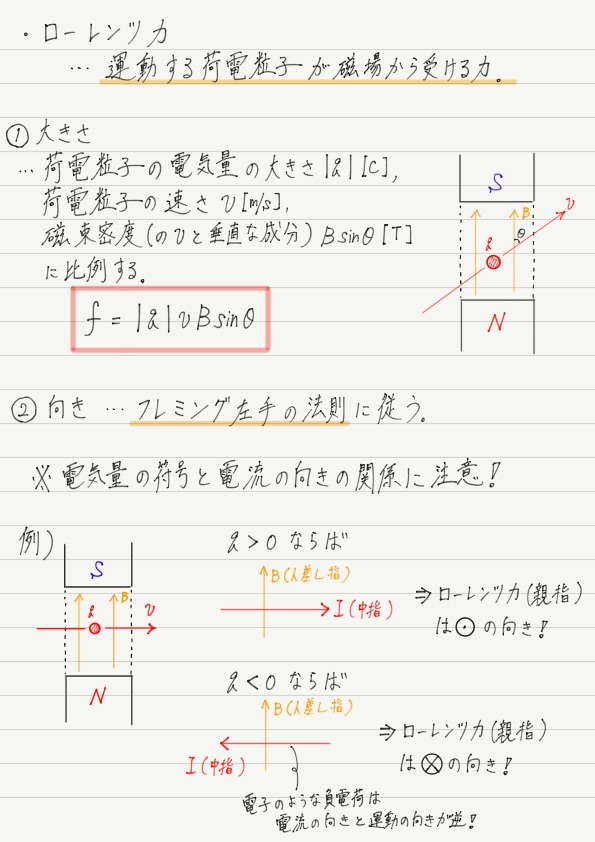 ・ローレンツ力
… 運動する荷電粒子が磁場から受ける力。
① 大きさ
… 荷電粒子の電気量の大きさ|q| [C],
荷電粒子の速さ v[m/s],
磁束密度(のvと垂直な成分) B sinθ [T]
に比例する。
f = |q| v B sinθ
S
B
v
θ
q
N
② 向き … フレミング左手の法則に従う。
※ 電気量の符号と電流の向きの関係に注意!
例)
S
q
B
v
N
q > 0 ならば
B(人差し指)
I (中指)
⇒ ローレンツ力(親指)
は⊙の向き!
q < 0 ならば
B(人差し指)
I (中指)
⇒ ローレンツ力(親指)
は⊗の向き!
電子のような負電荷は
電流の向きと運動の向きが逆!